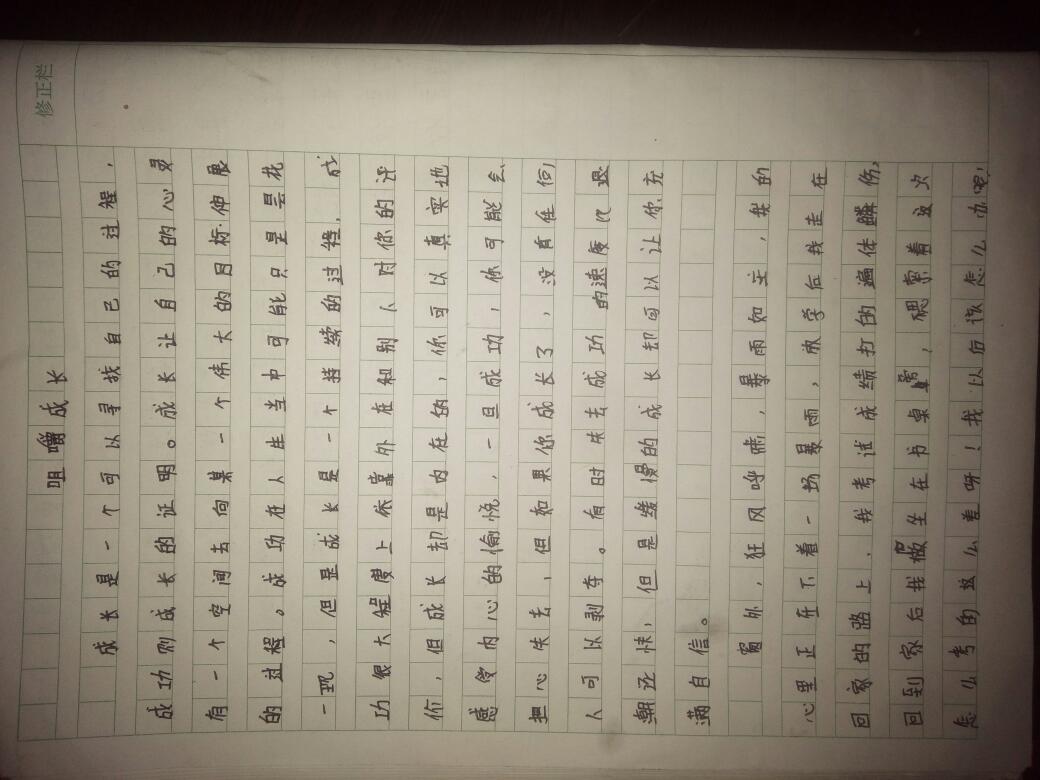 修正栏
咀嚼成长
成长是一个可以寻找自己的过程,
成功则成长的证明。成长让自己的心灵
有一个空间去向某一个伟大的目标伸展
的过程。成功在人生当中可能只是昙花
一现,但是成长是一个持续的过程。成
功很大程度上依靠外在和别人对你的评
价,但成长却是内在的,你可以真实地
感受内心的愉悦,一旦成功,你可能会
担心失去,但如果你成长了,没有任何
人可以剥夺。有时失去成功的速度比退
潮还快,但是缓慢的成长却可以让你充
满自信。
窗外,狂风呼啸,暴雨如注,我的
心里正在下着一场暴雨,放学后我走在
回家的路上,我考试成绩打的遍体鳞伤,
回到家后我坐在书桌,思索着这次
怎么考的这么差呀!我以后该怎么办呢,